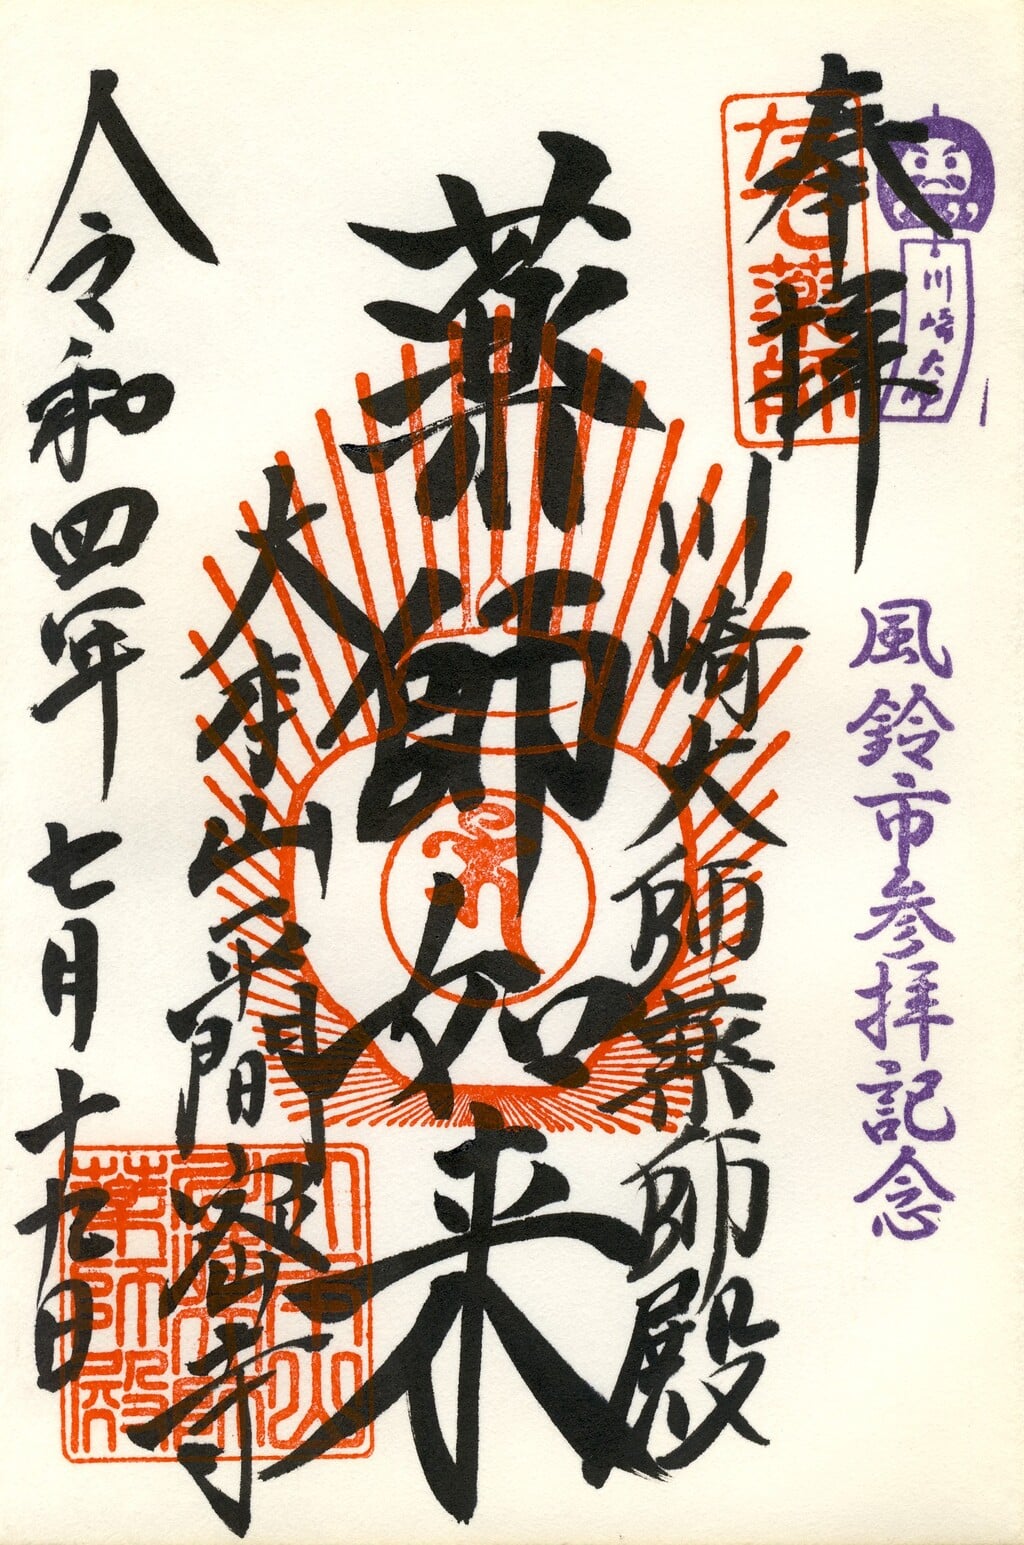 風鈴市参拝記念
川崎大師
奉拝
なで薬師
川崎大師薬師殿
薬師如来
大本山平間密寺
大本山
薬師殿
令和四年 七月十九日